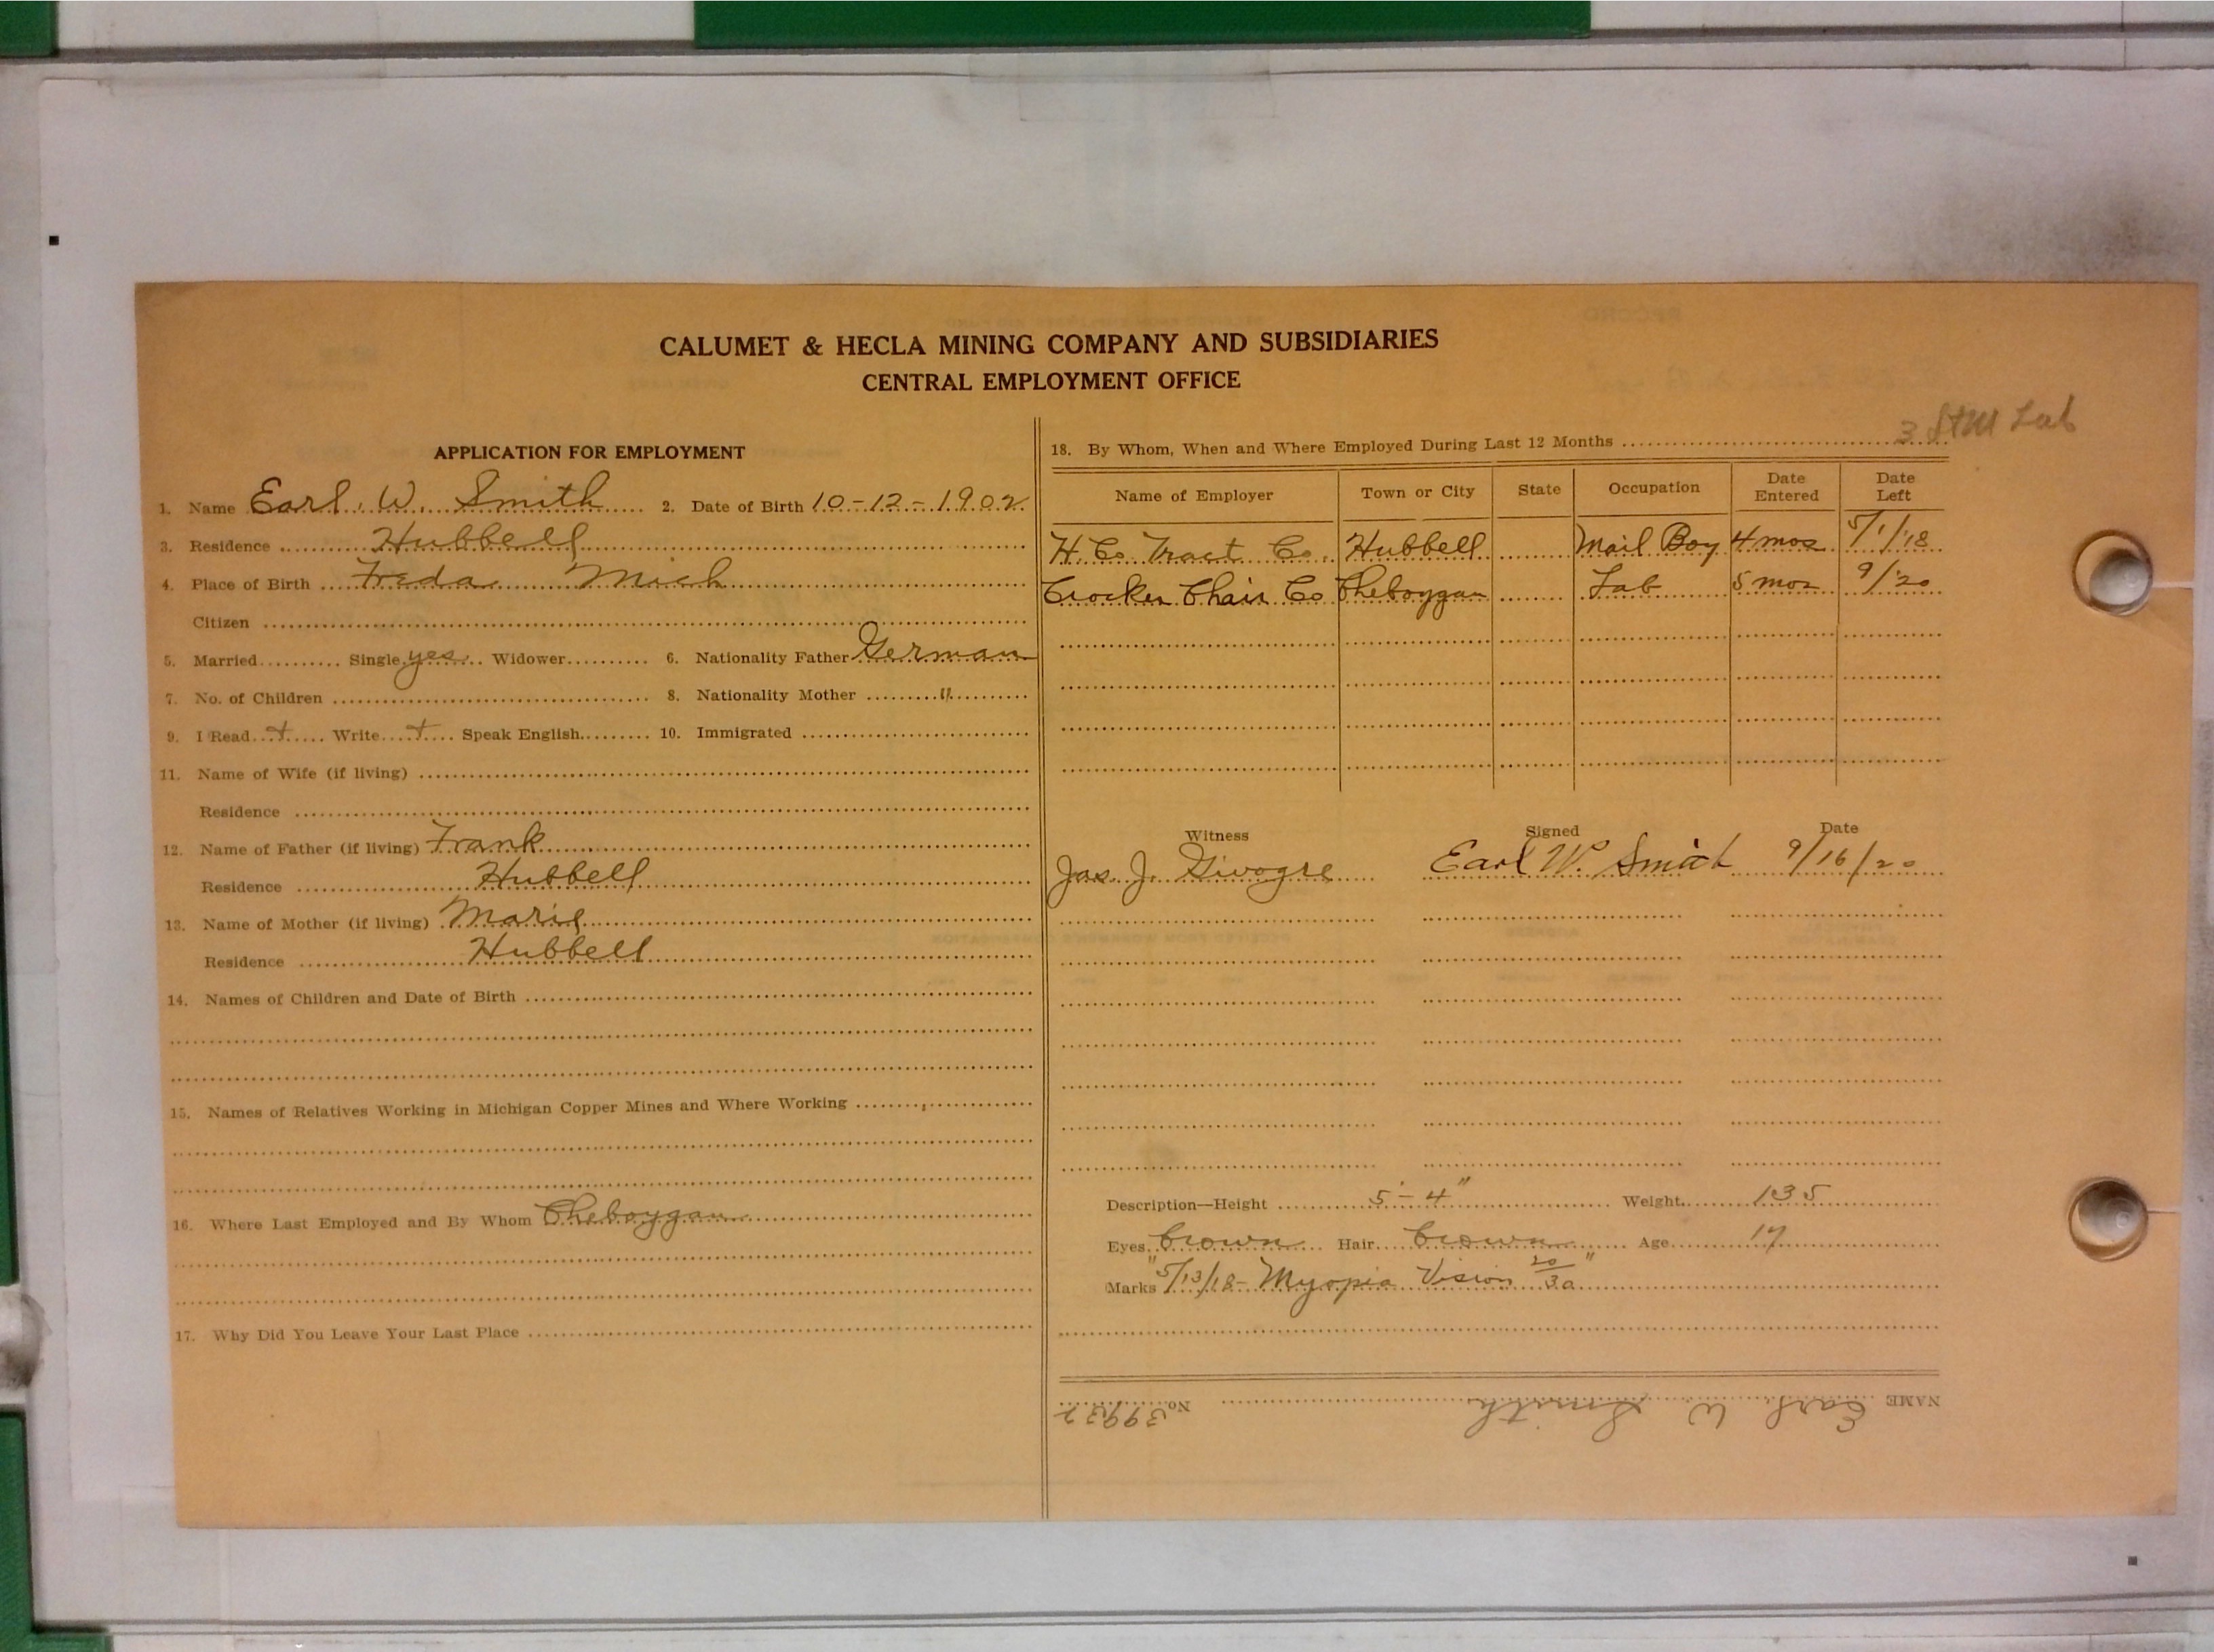 CALUMET & HECLA MINING COMPANY AND SUBSIDIARIES
CENTRAL EMPLOYMENT OFFICE
APPLICATION FOR EMPLOYMENT
1. Name Earl. W. Smith 2. Date of Birth 10-12-1902
3. Residence Hubbell
4. Place of Birth Freda Mich
Citizen
5. Married Single yes Widower 6. Nationality Father German
7. No. of Children 8. Nationality Mother "
9. I Read + Write + Speak English 10. Immigrated
11. Name of Wife (if living)
Residence
12. Name of Father (if living) Frank
Residence Hubbell
13. Name of Mother (if living) Marie
Residence Hubbell
14. Names of Children and Date of Birth
15. Names of Relatives Working in Michigan Copper Mines and Where Working
16. Where Last Employed and By Whom Cheboygan
17. Why Did You Leave Your Last Place
3 St M Lab
18. By Whom, When and Where Employed During Last 12 Months
Name of Employer Town or City State Occupation Date Entered Date Left
H. Co Tract Co. Hubbell Mail Boy 4 mos 5/1/18
Crocker Chair Co Cheboygan Lab 5 mos 9/20
Witness Signed Date
Jas. J. Givogre Earl W. Smith 9/16/20
Description—Height 5'-4" Weight 135
Eyes brown Hair brown Age 17
Marks "5/13/18- Myopia Vision 20/30"
NAME Earl W Smith No 39932